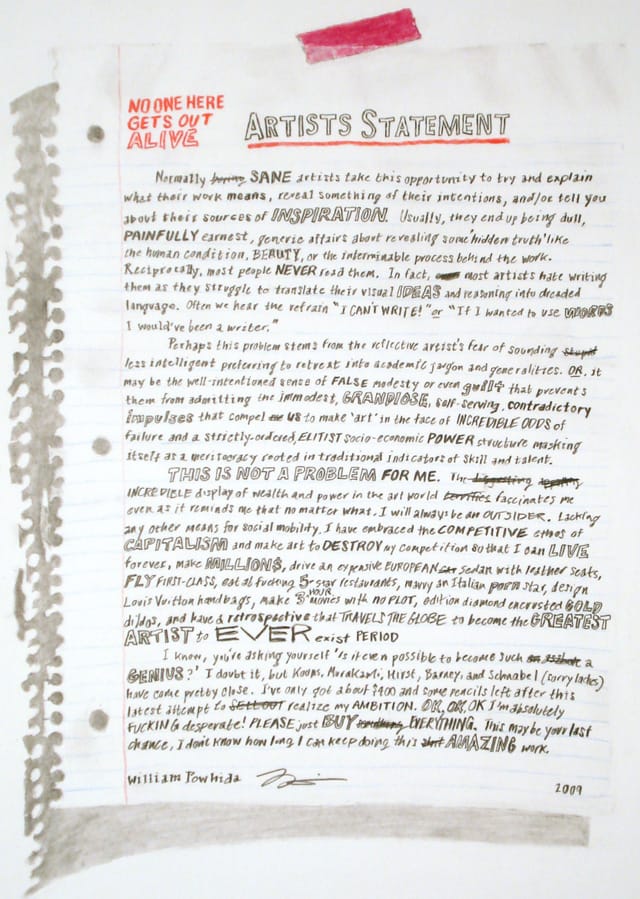 NO ONE HERE
GETS OUT
ALIVE
ARTISTS STATEMENT
Normally boring SANE artists take this opportunity to try and explain
what their work means, reveal something of their intentions, and/or tell you
about their sources of INSPIRATION. Usually, they end up being dull,
PAINFULLY earnest, generic affairs about revealing some 'hidden truth' like
the human condition, BEAUTY, or the interminable process behind the work.
Reciprocally, most people NEVER read them. In fact, most artists hate writing
them as they struggle to translate their visual IDEAS and reasoning into dreaded
language. Often we hear the refrain "I CAN'T WRITE!" or "If I wanted to use WORDS
I would've been a writer."
Perhaps this problem stems from the reflective artist's fear of sounding stupid
less intelligent preferring to retreat into academic jargon and generalities. OR, it
may be the well-intentioned sense of FALSE modesty or even guilt that prevents
them from admitting the immodest, GRANDIOSE, self-serving, contradictory
impulses that compel us to make 'art' in the face of INCREDIBLE ODDS of
failure and a strictly-ordered, ELITIST socio-economic POWER structure masking
itself as a meritocracy rooted in traditional indicators of skill and talent.
THIS IS NOT A PROBLEM FOR ME. The disgusting
INCREDIBLE display of wealth and power in the art world terrifies faccinates me
even as it reminds me that no matter what, I will always be an OUTSIDER. Lacking
any other means for social mobility, I have embraced the COMPETITIVE ethos of
CAPITALISM and make art to DESTROY my competition so that I can LIVE
forever, make MILLION$, drive an expensive EUROPEAN car sedan with leather seats,
FLY FIRST-CLASS, eat at fucking 5-star restaurants, marry an Italian porn star, design
Louis Vuitton handbags, make 3 HOUR MOVIES with no PLOT, edition diamond encrusted GOLD
dildos, and have a retrospective that TRAVELS THE GLOBE to become the GREATEST
ARTIST to EVER exist PERIOD
I know, you're asking yourself 'Is it even possible to become such an asshole a
GENIUS?' I doubt it, but Koons, Murakami, Hirst, Barney, and Schnabel (sorry ladies)
have come pretty close. I've only got about $400 and some pencils left after this
latest attempt to SELL OUT realize my AMBITION. OK, OK, OK I'm absolutely
FUCKING desperate! PLEASE just BUY EVERYTHING. This may be your last
chance, I don't know how long I can keep doing this shit AMAZING work.
William Powhida
2009